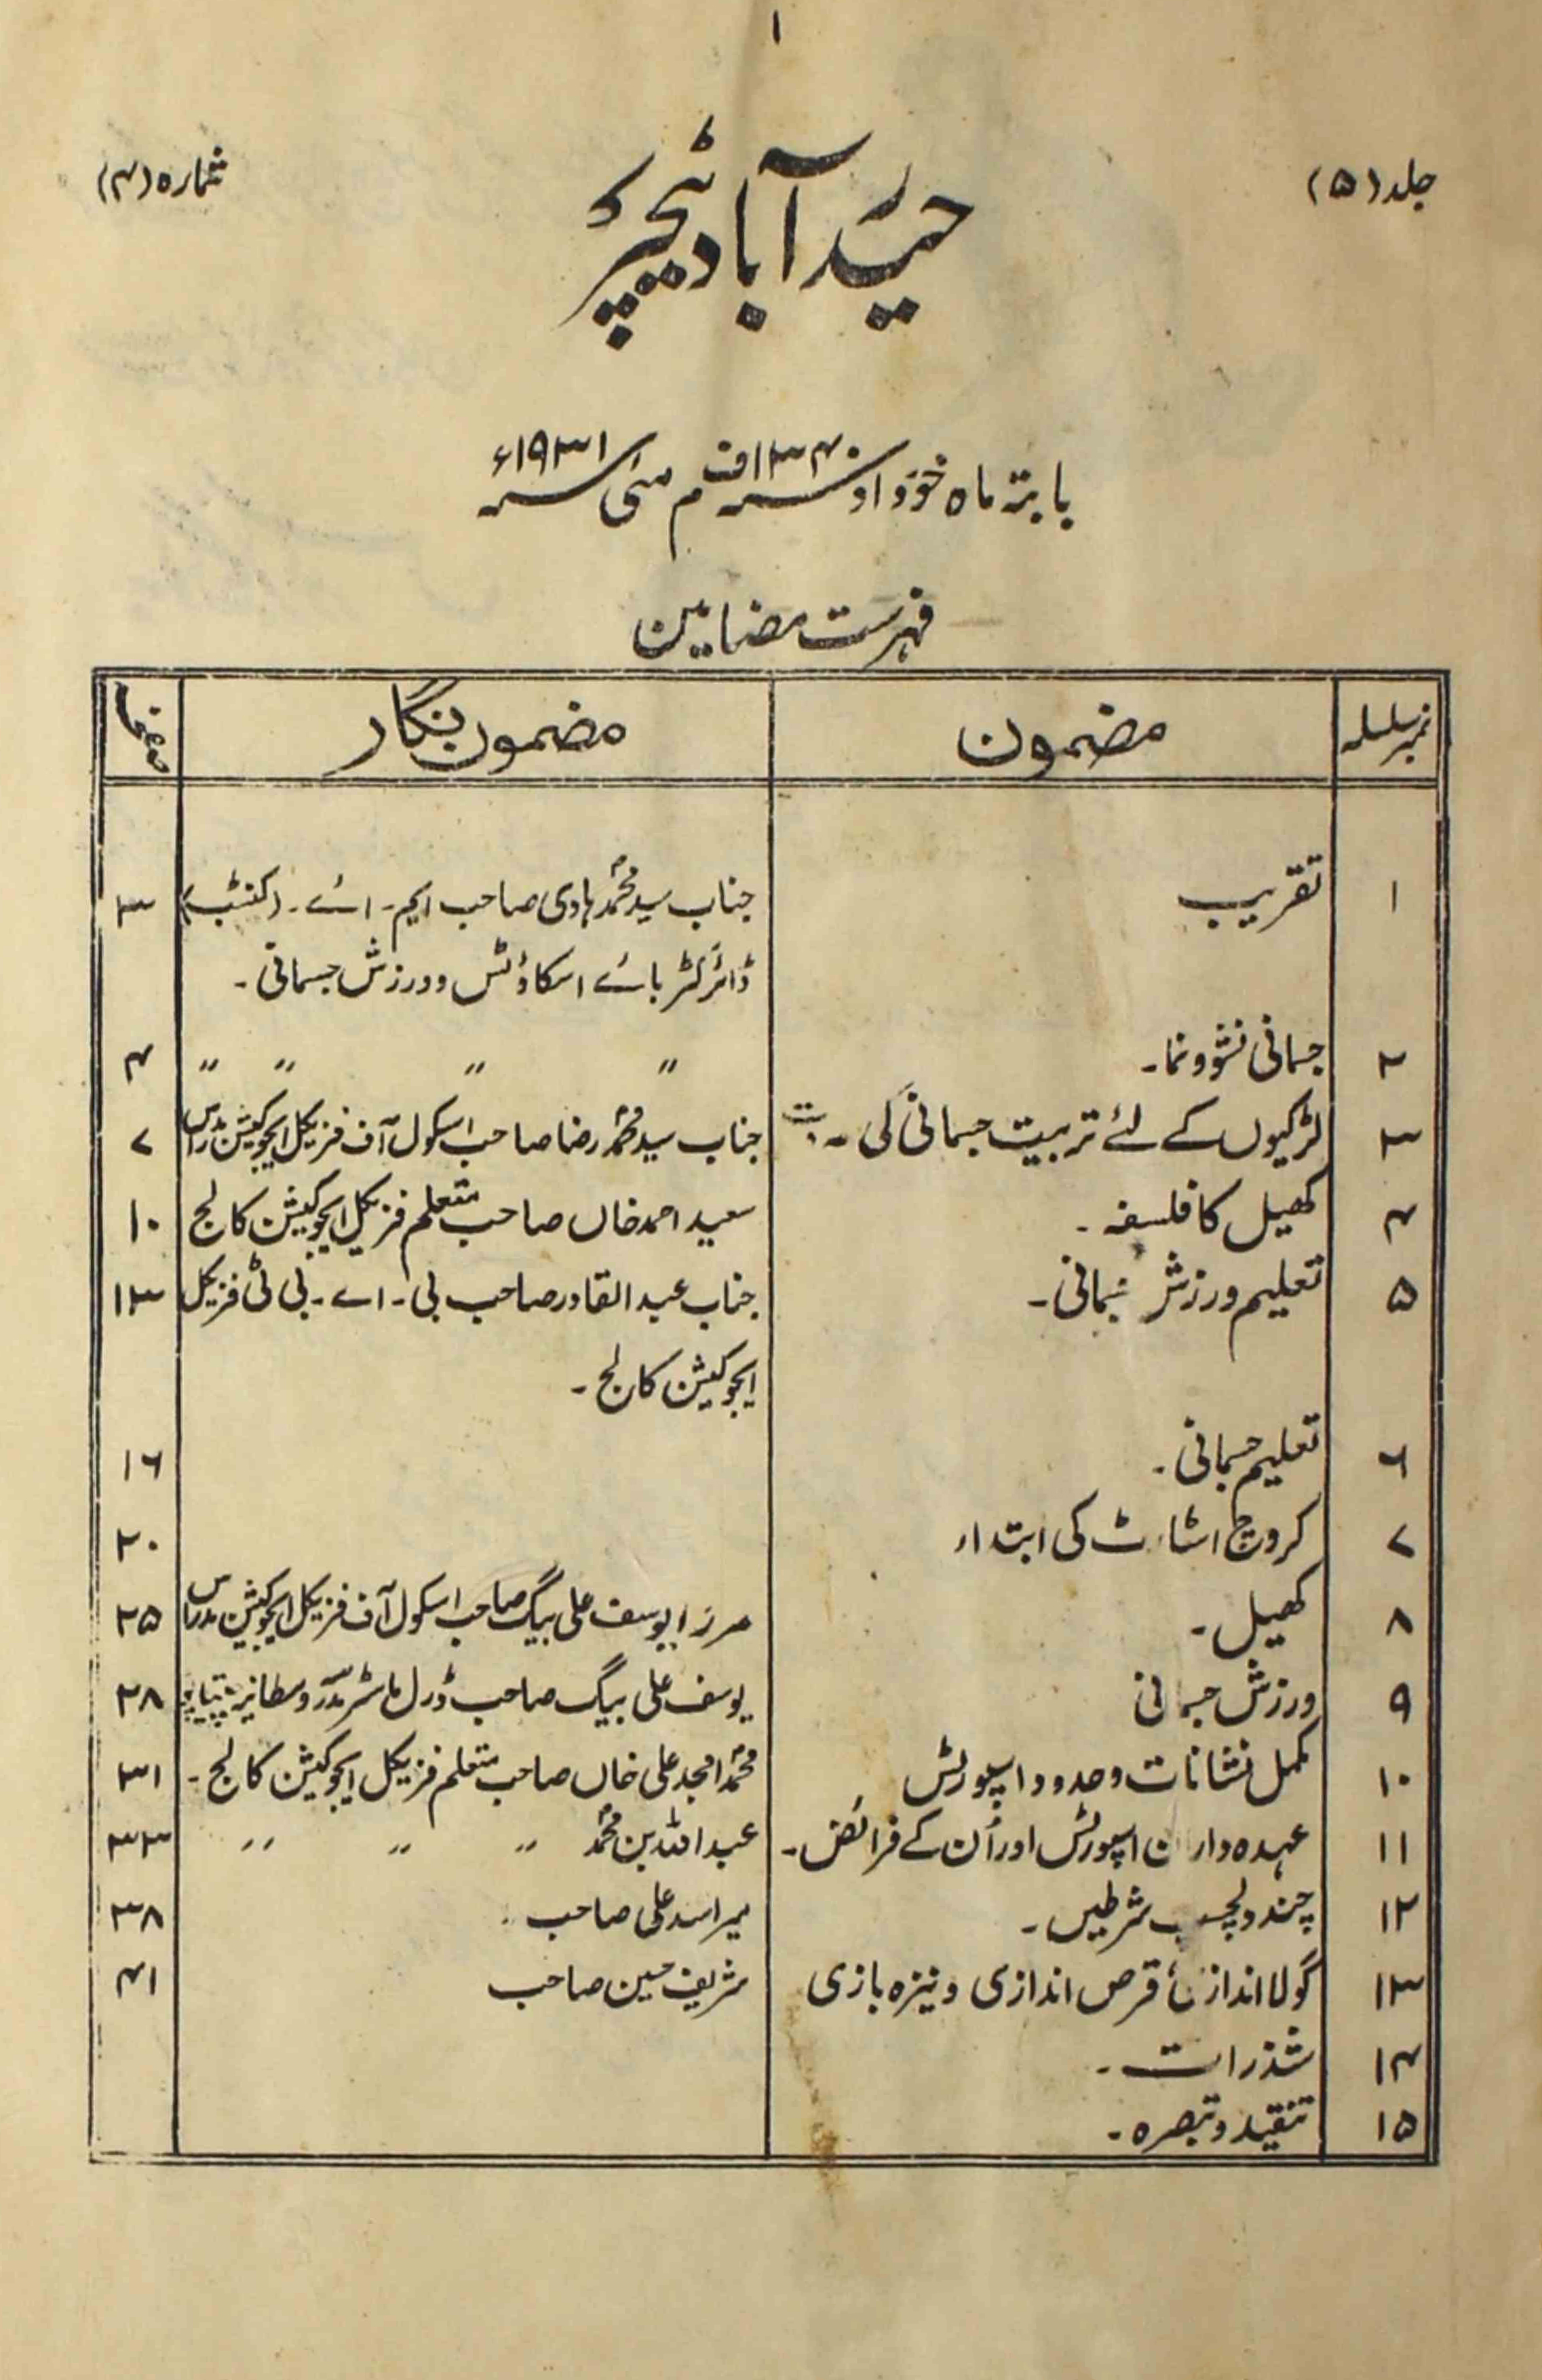 ۱
جلد (۵)
شمارہ (۴)
حیدرآباد ٹیچر
بابتہ ماہ خورداد سنہ ۱۳۴۰ف م مئی سنہ ۱۹۳۱ء
فہرست مضامین
نمبر سلسلہ مضمون مضمون نگار صفحہ
۱ تقریب جناب سید محمد ہادی صاحب ایم۔ اے۔ (کنٹب) ۳
ڈائرکٹر بائے اسکاؤٹس و ورزش جسمانی۔
۲ جسمانی نشوونما۔ " " " " ۴
۳ لڑکیوں کے لئے تربیت جسمانی کی جناب سید محمد رضا صاحب اسکول آف فزیکل ایجوکیشن مدراس ۷
۴ کھیل کا فلسفہ۔ سعید احمد خاں صاحب متعلم فزیکل ایجوکیشن کالج ۱۰
۵ تعلیم ورزش جسمانی۔ جناب عبدالقادر صاحب بی۔ اے۔ بی ٹی فزیکل ۱۳
ایجوکیشن کالج۔
۶ تعلیم جسمانی۔ ۱۶
۷ کروچ اسٹارٹ کی ابتداء ۲۰
۸ کھیل۔ مرزا یوسف علی بیگ صاحب اسکول آف فزیکل ایجوکیشن مدراس ۲۵
۹ ورزش جسمانی یوسف علی بیگ صاحب ڈرل ماسٹر مدرسہ وسطانیہ ۲۸
۱۰ مکمل نشانات و حدود اسپورٹس محمد امجد علی خاں صاحب متعلم فزیکل ایجوکیشن کالج۔ ۳۱
۱۱ عہدہ داران اسپورٹس اور اُن کے فرائض۔ عبداللہ بن محمد " " " ۳۳
۱۲ چند دلچسپ شرطیں۔ میر اسد علی صاحب۔ ۳۸
۱۳ گولا اندازی، قرص اندازی و نیزہ بازی شریف حسین صاحب ۴۱
۱۴ شذرات۔
۱۵ تنقید و تبصرہ۔